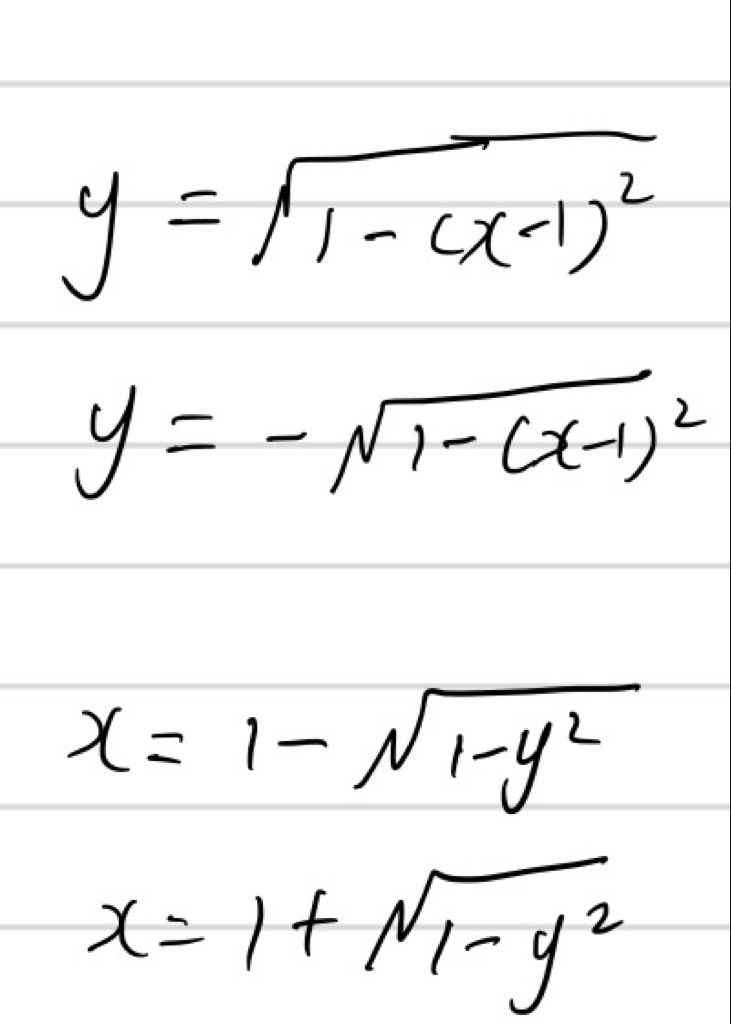 y = √(1 - (x-1)²)
y = -√(1 - (x-1)²)
x = 1 - √(1-y²)
x = 1 + √(1-y²)